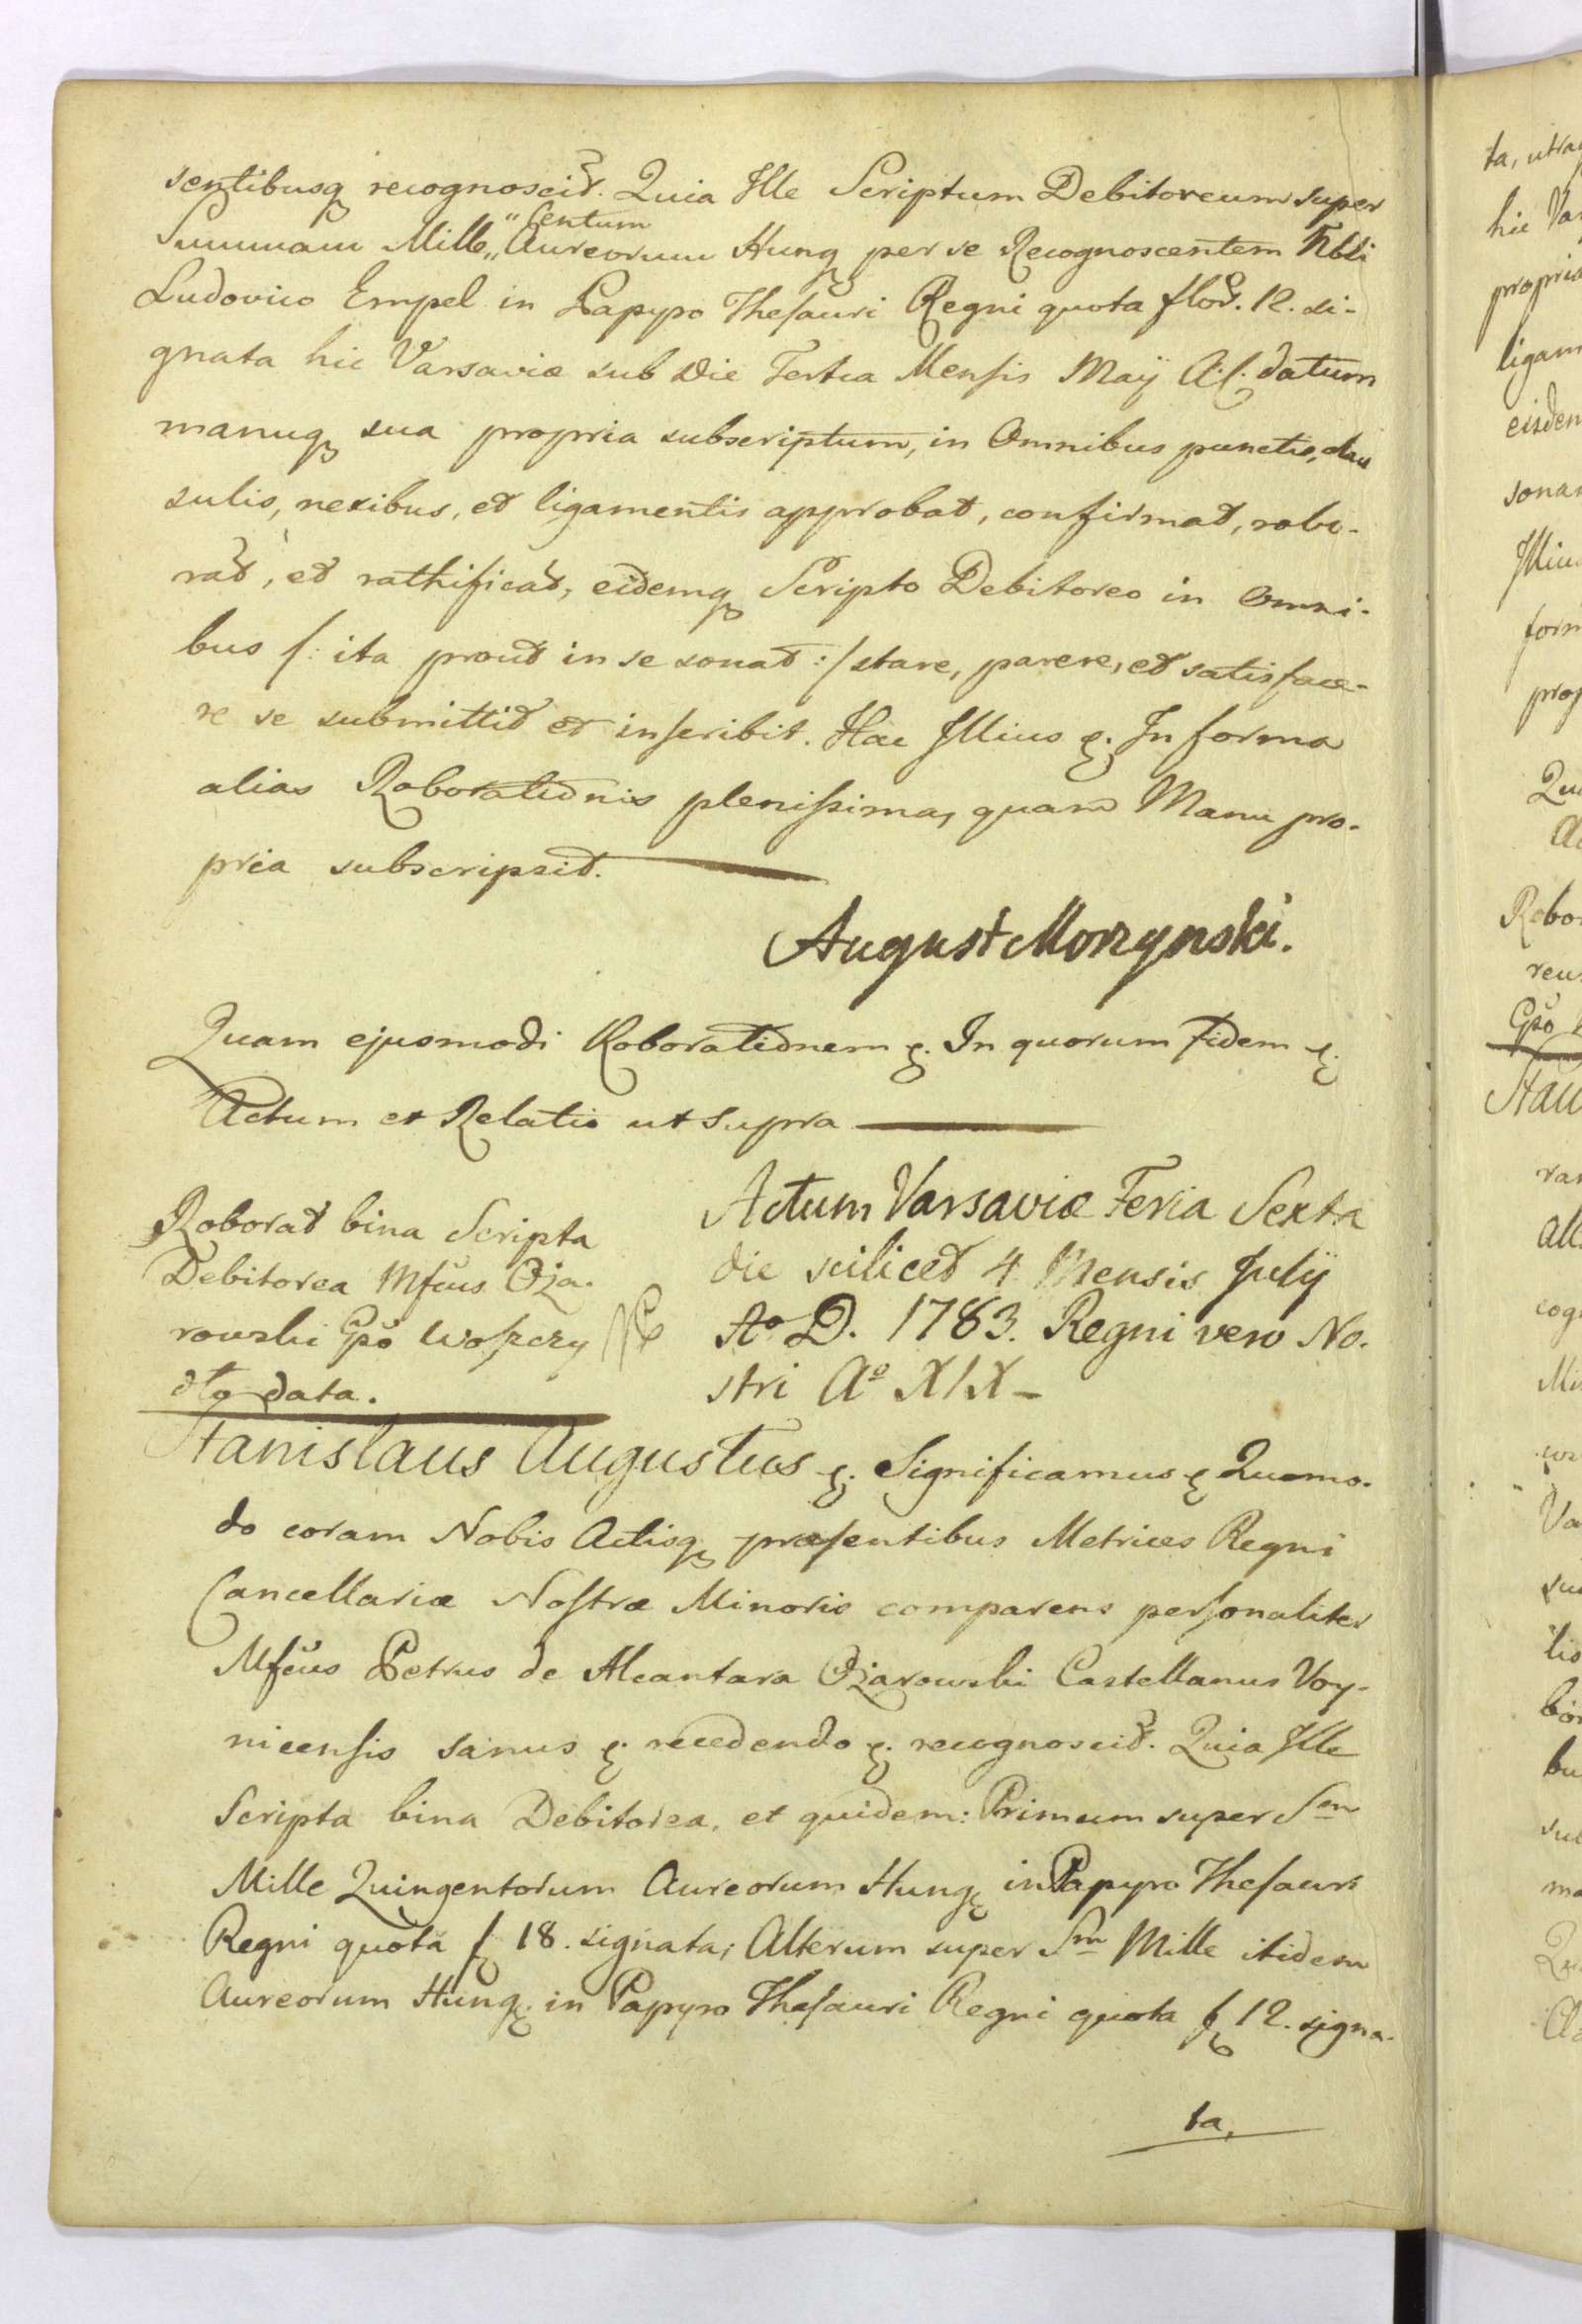 sentibusq recognoscit. Quia Ille Scriptum Debitoreum super
Centum
Summam Mille „ Aureorum Hung per se Recognoscentem Nbli
Ludovico Empel in Papyro Thesauri Regni quota flor. 12. si-
gnata hic Varsaviæ sub Die Tertia Mensis Maÿ A. c. datum
manuq sua propria subscriptum, in Omnibus punctis, clau
sulis, nexibus, et ligamentis approbat, confirmat, robo-
rat, et rathificat, eidemq Scripto Debitoreo in Omni-
bus /: ita prout in se sonat :/ stare, parere, et satisface-
re se submittit et inscribit. Hac Illius &. In forma
alias Roborationis plenissima, quam Manu pro-
pria subscripsit.
August Morzynski.
Quam ejusmodi Roborationem &. In quorum Fidem &.
Actum et Relatio ut supra
Roborat bina Scripta
Debitorea Mfcus Oża-
rowski Gso Woszczy
data.
Actum Varsaviæ Feria Sexta
die scilicet 4 Mensis Julÿ
Ao D. 1783. Regni vero No-
stri Ao XIX-
Stanislaus Augustus &. Significamus & Quomo-
do coram Nobis Actisq præsentibus Metrices Regni
Cancellariæ Nostræ Minoris comparens personaliter
Mfcus Petrus de Alcantara Ożarowski Castellanus Voy-
nicensis sanus &. recedendo &. recognoscit. Quia Ille
Scripta bina Debitorea, et quidem: Primum super Sm
Mille Quingentorum Aureorum Hung in Papyro Thesauri
Regni quota f 18. signata; Alterum super Sm Mille itidem
Aureorum Hung. in Papyro Thesauri Regni quota f 12. signa-
ta,